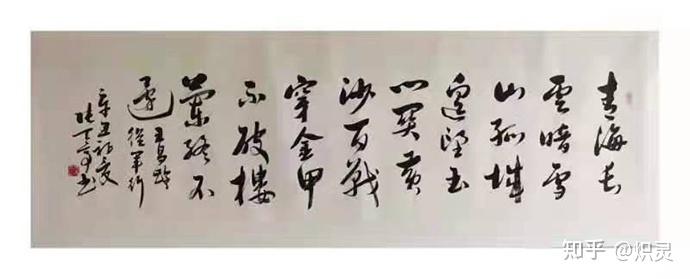 青海长
雲暗雪
山孤城
遥望玉
门关黄
沙百戰
穿金甲
不破楼
蘭终不
還
王昌龄
從军行
辛丑初夏
书
知乎 @炽灵